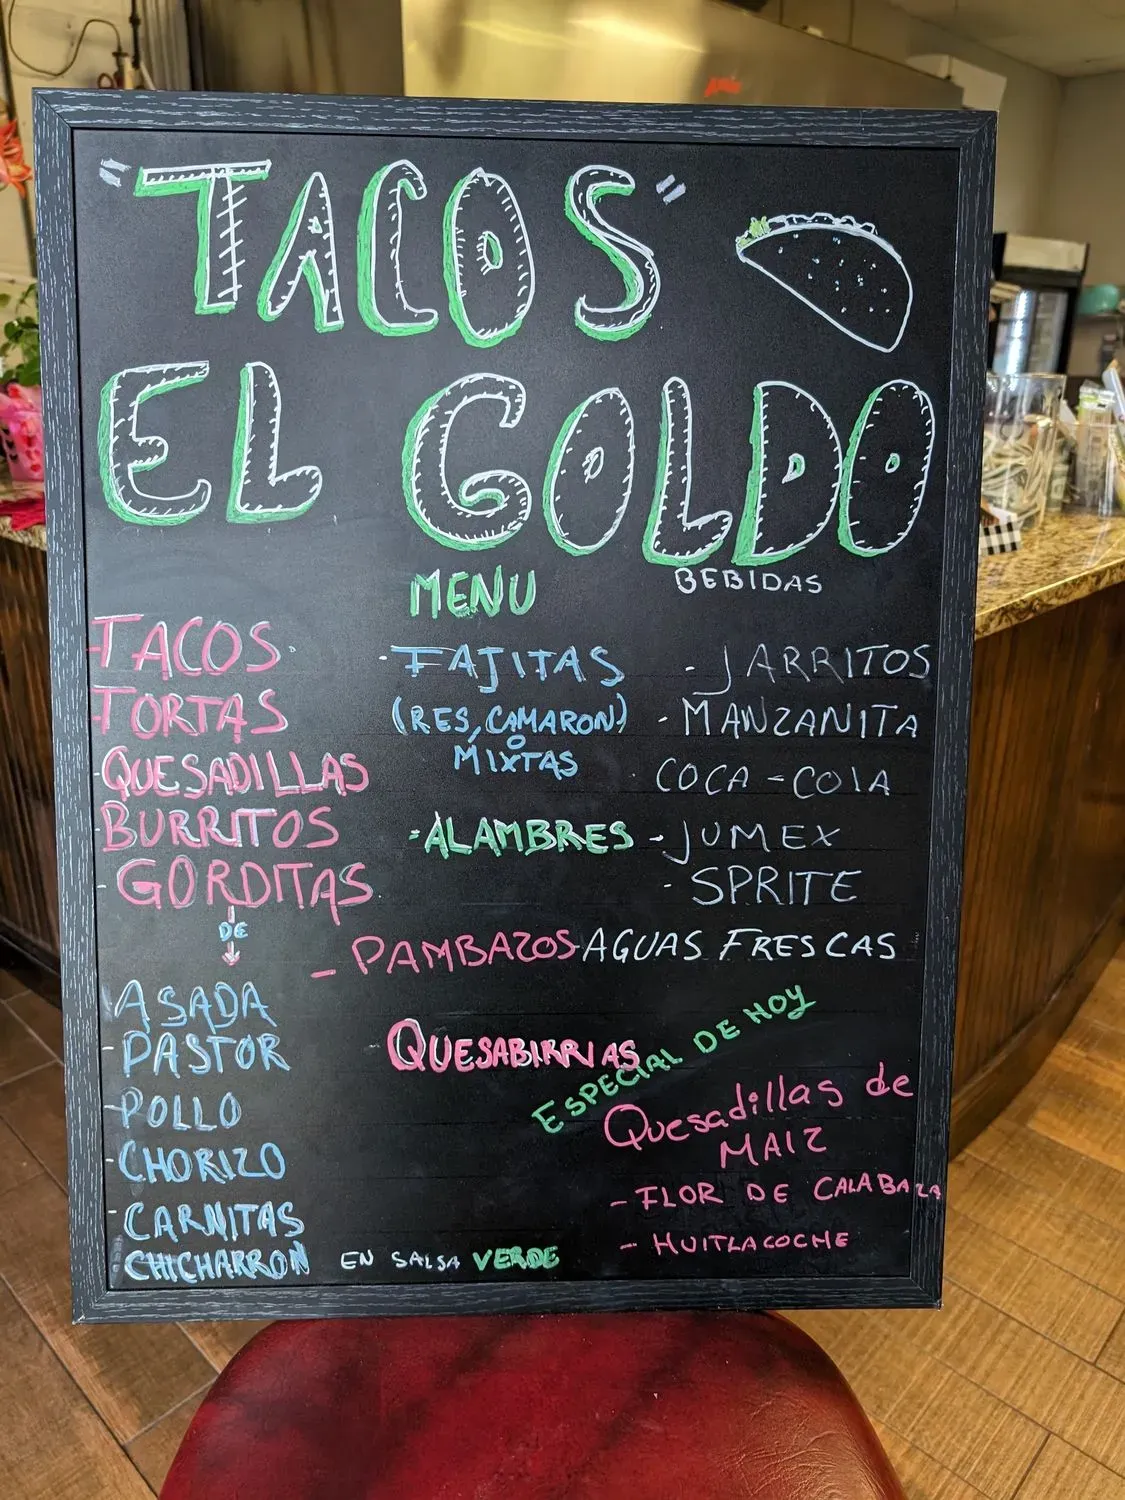 "TACOS"
EL GOLDO
MENU
TACOS
TORTAS
QUESADILLAS
BURRITOS
GORDITAS
DE
ASADA
PASTOR
POLLO
CHORIZO
CARNITAS
CHICHARRON EN SALSA VERDE
- FAJITAS
(RES, CAMARON)
O
MIXTAS
- ALAMBRES
- PAMBAZOS
QUESABIRRIAS
BEBIDAS
- JARRITOS
- MANZANITA
COCA-COLA
- JUMEX
- SPRITE
- AGUAS FRESCAS
ESPECIAL DE HOY
Quesadillas de
MAIZ
- FLOR DE CALABAZA
- HUITLACOCHE